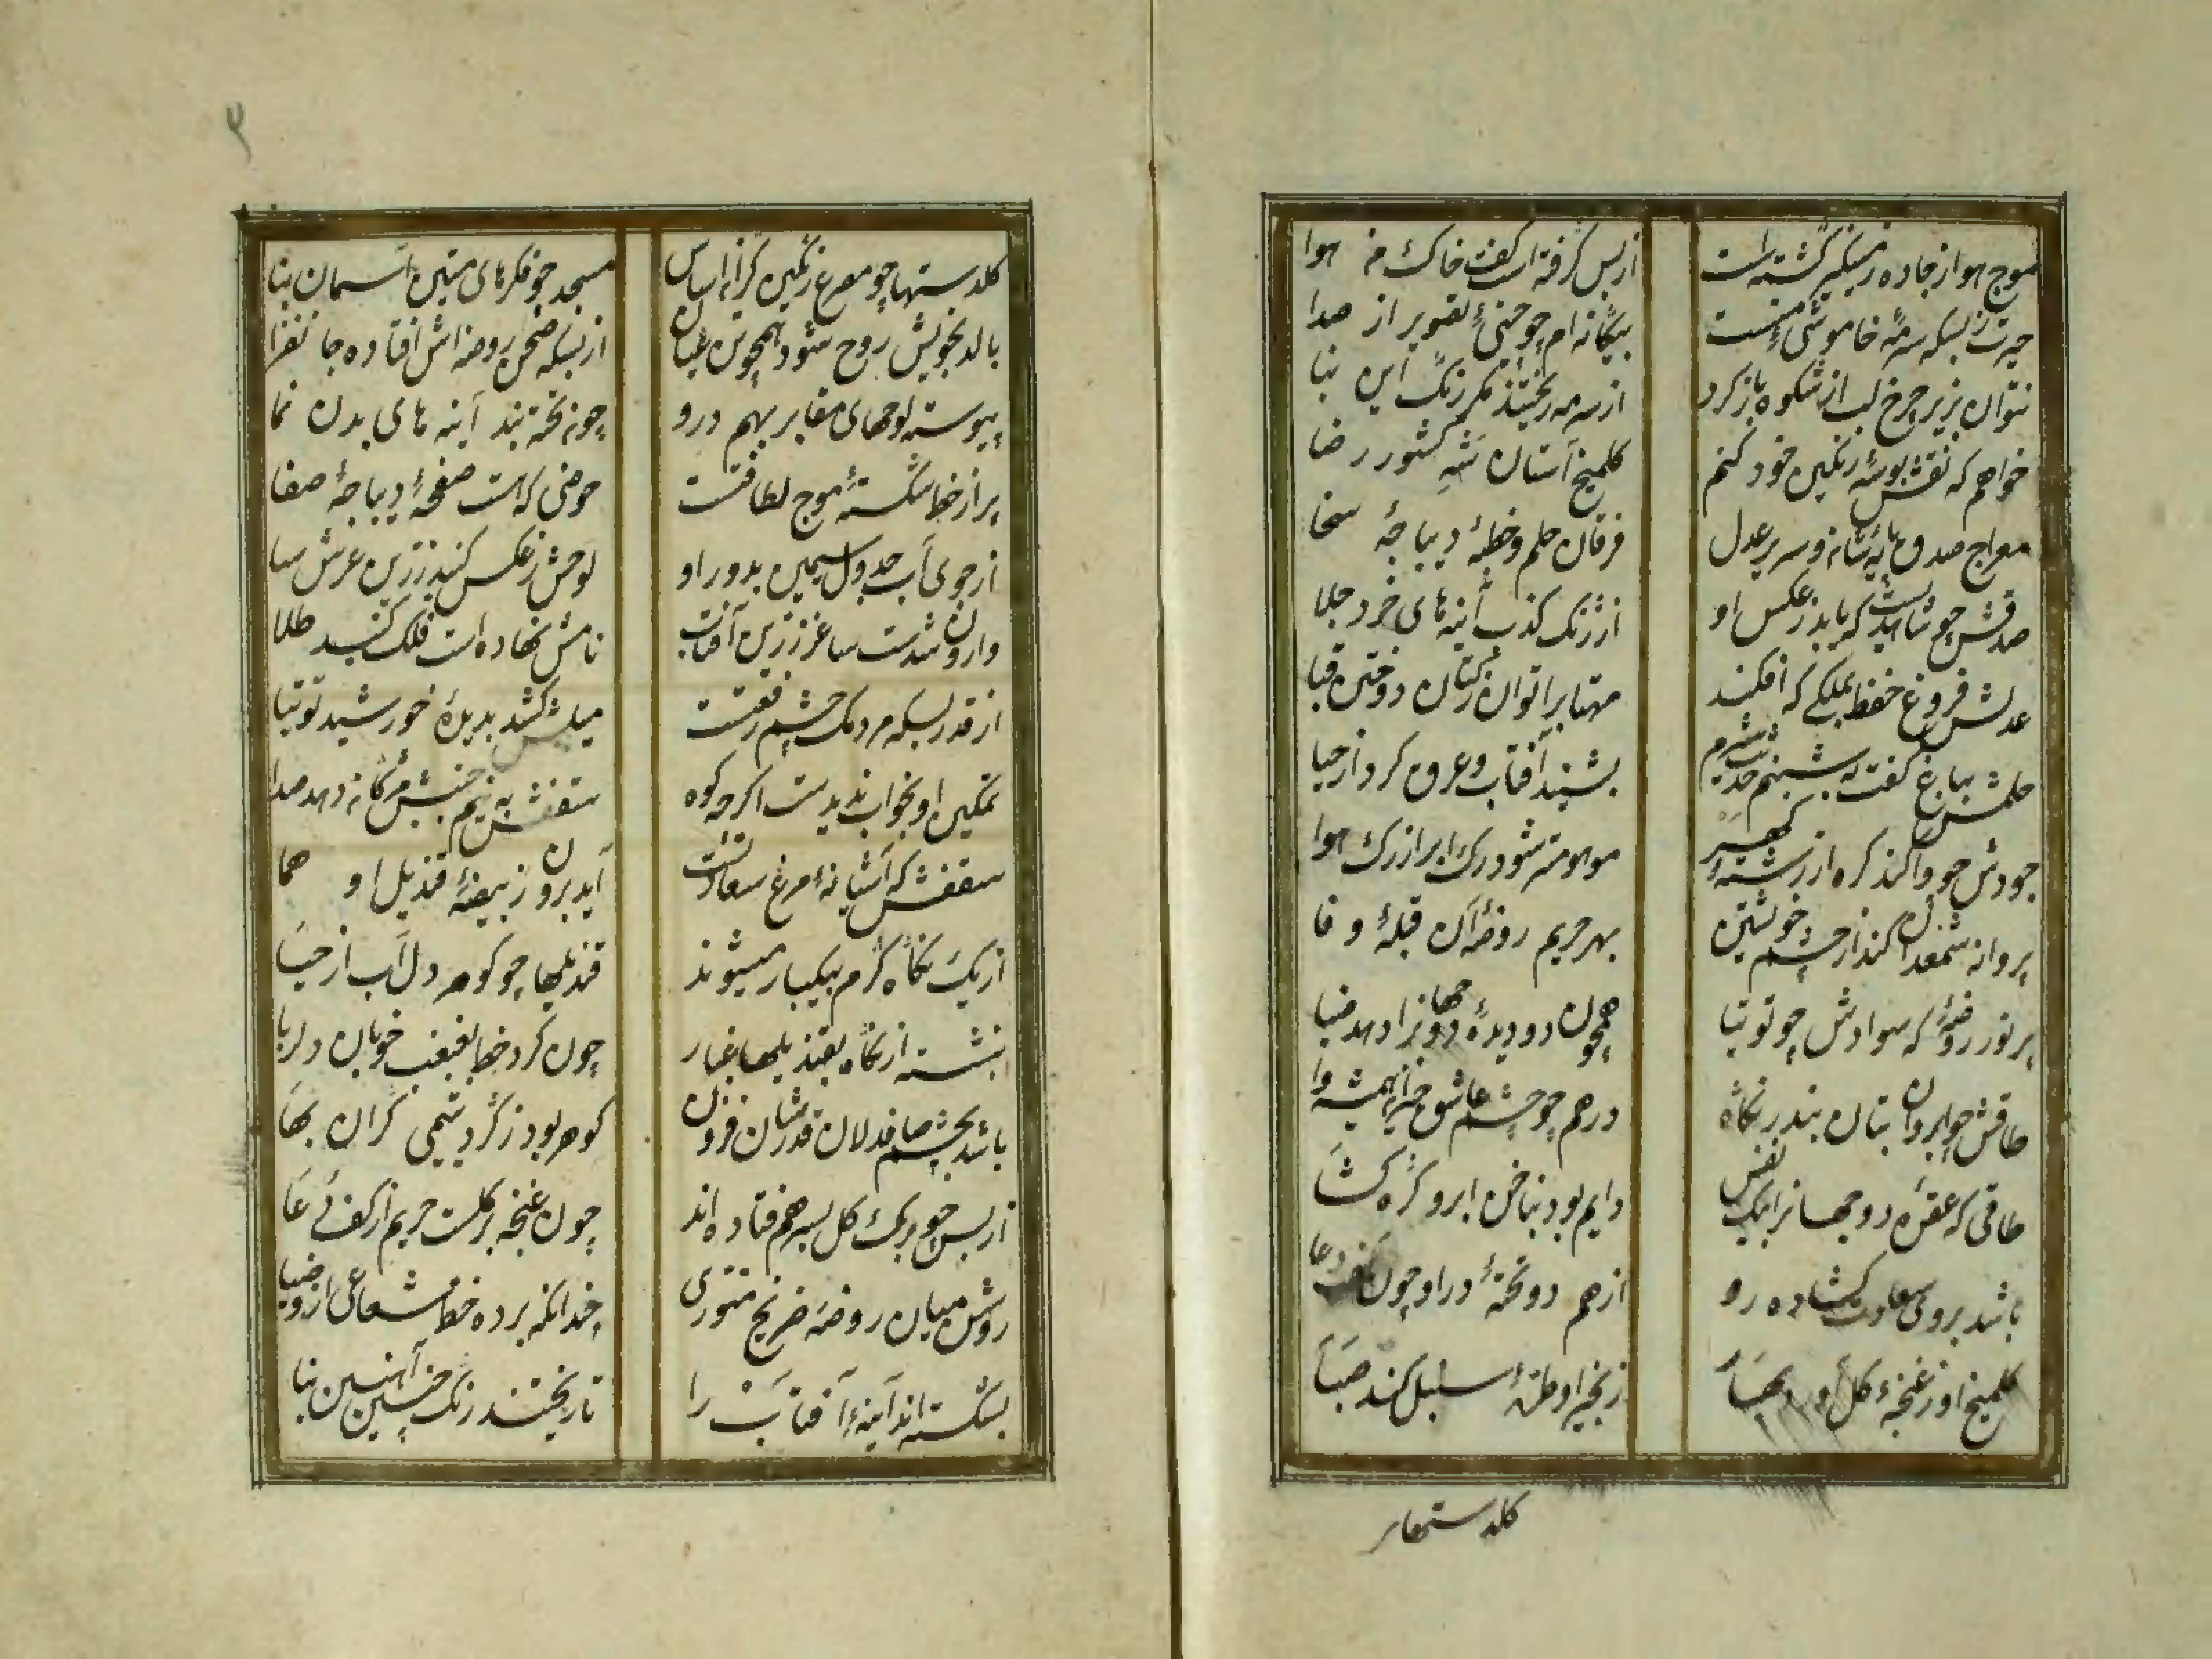 موج هوا ز جاده زمینگیر گشته است
از بس گرفته است کفت خاک نم هوا
حیرت ز بسکه سرمهٔ خاموشی منست
بیکانه ام چو چینیٔ تصویر از صدا
نتوان بزیر چرخ لب از شکوه باز کرد
از سرمه ریختند مکر رنک این بنا
خواهم که نقش بوسهٔ رنکین خود کنم
کلمیخ آستان شه کشور رضا
معراج صدق پایهٔ شانه و سریر عدل
فرقان حلم و خطبهٔ دیباجهٔ سخا
صدقش چو شاهدیست که باید ز عکس او
از زنک کذب آینه های خرد جلا
عدلش فروغ حفظ بملکی که افکند
مهتاب را توان ز کتان دوختن قبا
حلمش بباغ کفت به شبنم حدیث شرم
بشنید آفتاب و عرق کرد از حیا
جودش چو وا کند کره از رشتهٔ کهر
مو بمو شود رک ابر از رک هوا
پروانه شمعدان کند از چشم خویشتن
بهر حریم روضهٔ آن قبلهٔ وفا
پر نور روضهٔ که سوادش چو توتیا
همچون دو دیده دو جهانرا دهد ضیا
طاقش چو ابروان بتان بند بر نکاه
درهم چو چشم عاشق حیرانهمیشه وا
طاقی که عقدهٔ دو جهانرا بیک نفس
دایم بود بناخن ابرو کره کشا
باشد بروی سعادت کشاده رو
از هم دو تختهٔ در او چون کف دعا
کلمیخ او ز غنچهٔ کل بهار
زنجیر او سنبل کند صبا
کلدستهای
کلدستها چو مصرع رنکین کران اساس
مسجد چو فکرهای متین آسمان بنا
بالد بخویش روح شود همچو تن عیان
از بسکه صحن روضه اش افتاده جانفزا
پیوسته لوحهای مقابر بهم درو
چون تخته بند آینه های بدن نما
پر از خط شکستهٔ موج لطافتست
حوضی که هست صفحهٔ دیباجهٔ صفا
از جوی آب جدول سیمین بدور او
لوحش ز عکس کنبد زرین عرش سا
وارون شدست ساغر زرین آفتاب
نامش نهاده است فلک کنبد طلا
از قدر بسکه مردمک چشم رفعتست
میلش کشد بدیدهٔ خورشید توتیا
تمکین او بخواب ندیدست اکر چه کوه
سقفش به نیم جنبش مژکان دهد صدا
سقفش که آشیانهٔ مرغ سعادتست
آید برون ز بیضهٔ قندیل او هما
از یک نکاه کرم بیکبار میشوند
قندیلها چو کوهر دل آب از حیا
ننشسته از نکاه بقندیلها غبار
چون کرد خط بغبغب خوبان دلربا
باشد بچشم صافدلان قدرشان فزون
کوهر بود ز کرد یتیمی کران بها
از بس چو برک کل بسر هم فتاده اند
چون غنچه پر کلست حریم از کف دعا
روشن میان روضه ضریح منوری
چندانکه برده خط شعاعی ازو ضیا
بشکسته اند آینهٔ آفتاب را
تا ریختند رنک چنین آهنین بنا